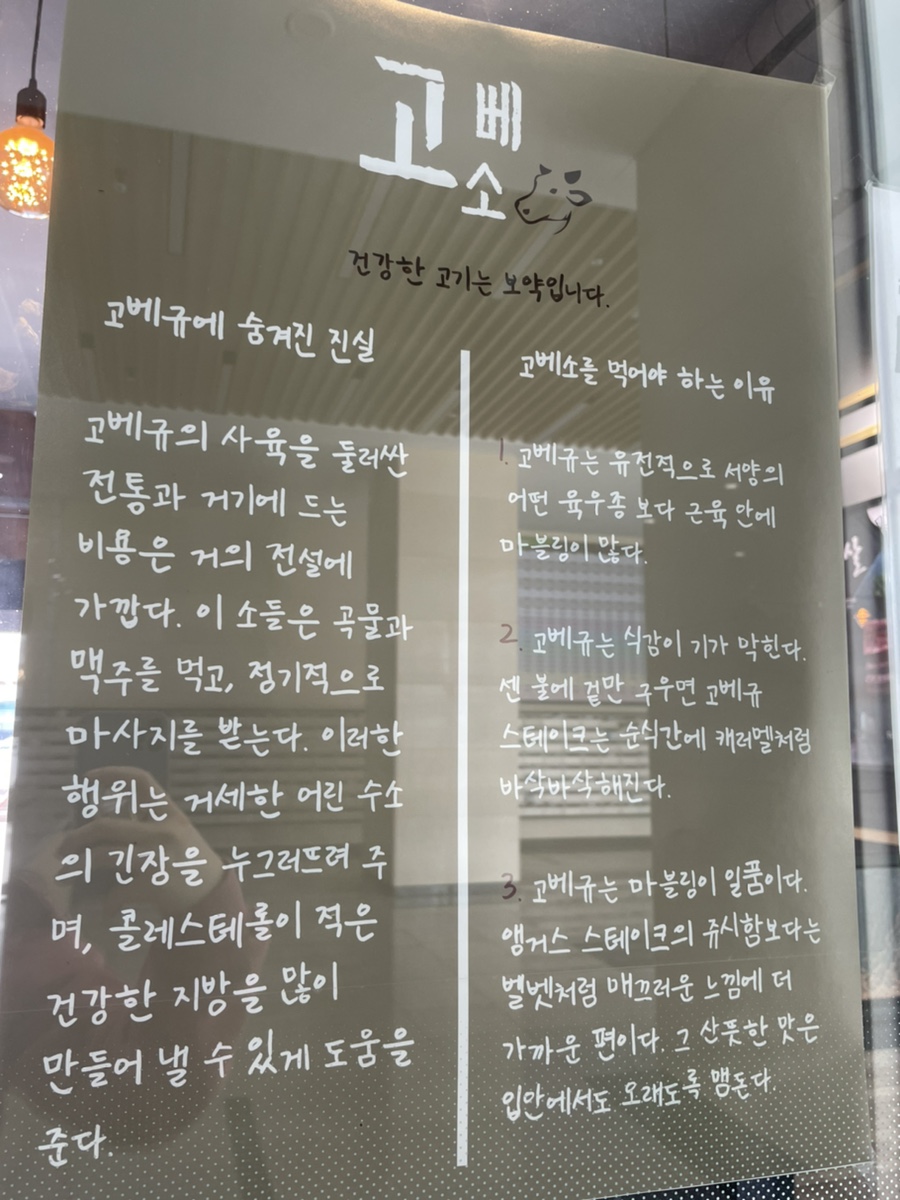 고베
소
건강한 고기는 보약입니다.
고베규에 숨겨진 진실
고베규의 사육을 둘러싼
전통과 거기에 드는
비용은 거의 전설에
가깝다. 이 소들은 곡물과
맥주를 먹고, 정기적으로
마사지를 받는다. 이러한
행위는 거세한 어린 수소
의 긴장을 누그러뜨려 주
며, 콜레스테롤이 적은
건강한 지방을 많이
만들어 낼 수 있게 도움을
준다.
고베소를 먹어야 하는 이유
1. 고베규는 유전적으로 서양의
어떤 육우종 보다 근육 안에
마블링이 많다.
2. 고베규는 식감이 기가 막힌다.
센 불에 겉만 구우면 고베규
스테이크는 순식간에 캐러멜처럼
바삭바삭해진다.
3. 고베규는 마블링이 일품이다.
앵거스 스테이크의 쥬시함보다는
벨벳처럼 매끄러운 느낌에 더
가까운 편이다. 그 산뜻한 맛은
입안에서도 오래도록 맴돈다.